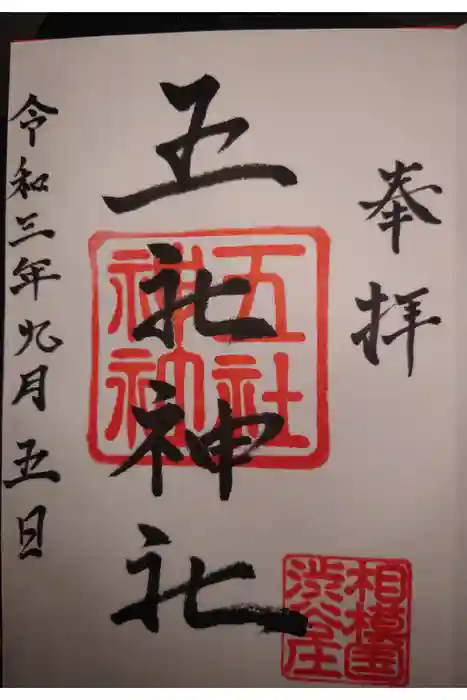 奉拝
五社神社
令和三年九月五日
五社
神社
相模国
渋谷庄